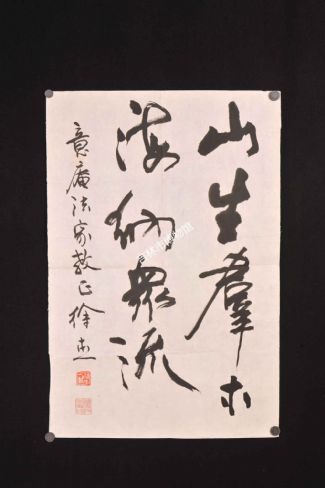 山生群木
海纳众流
意庵法家教正 徐杰